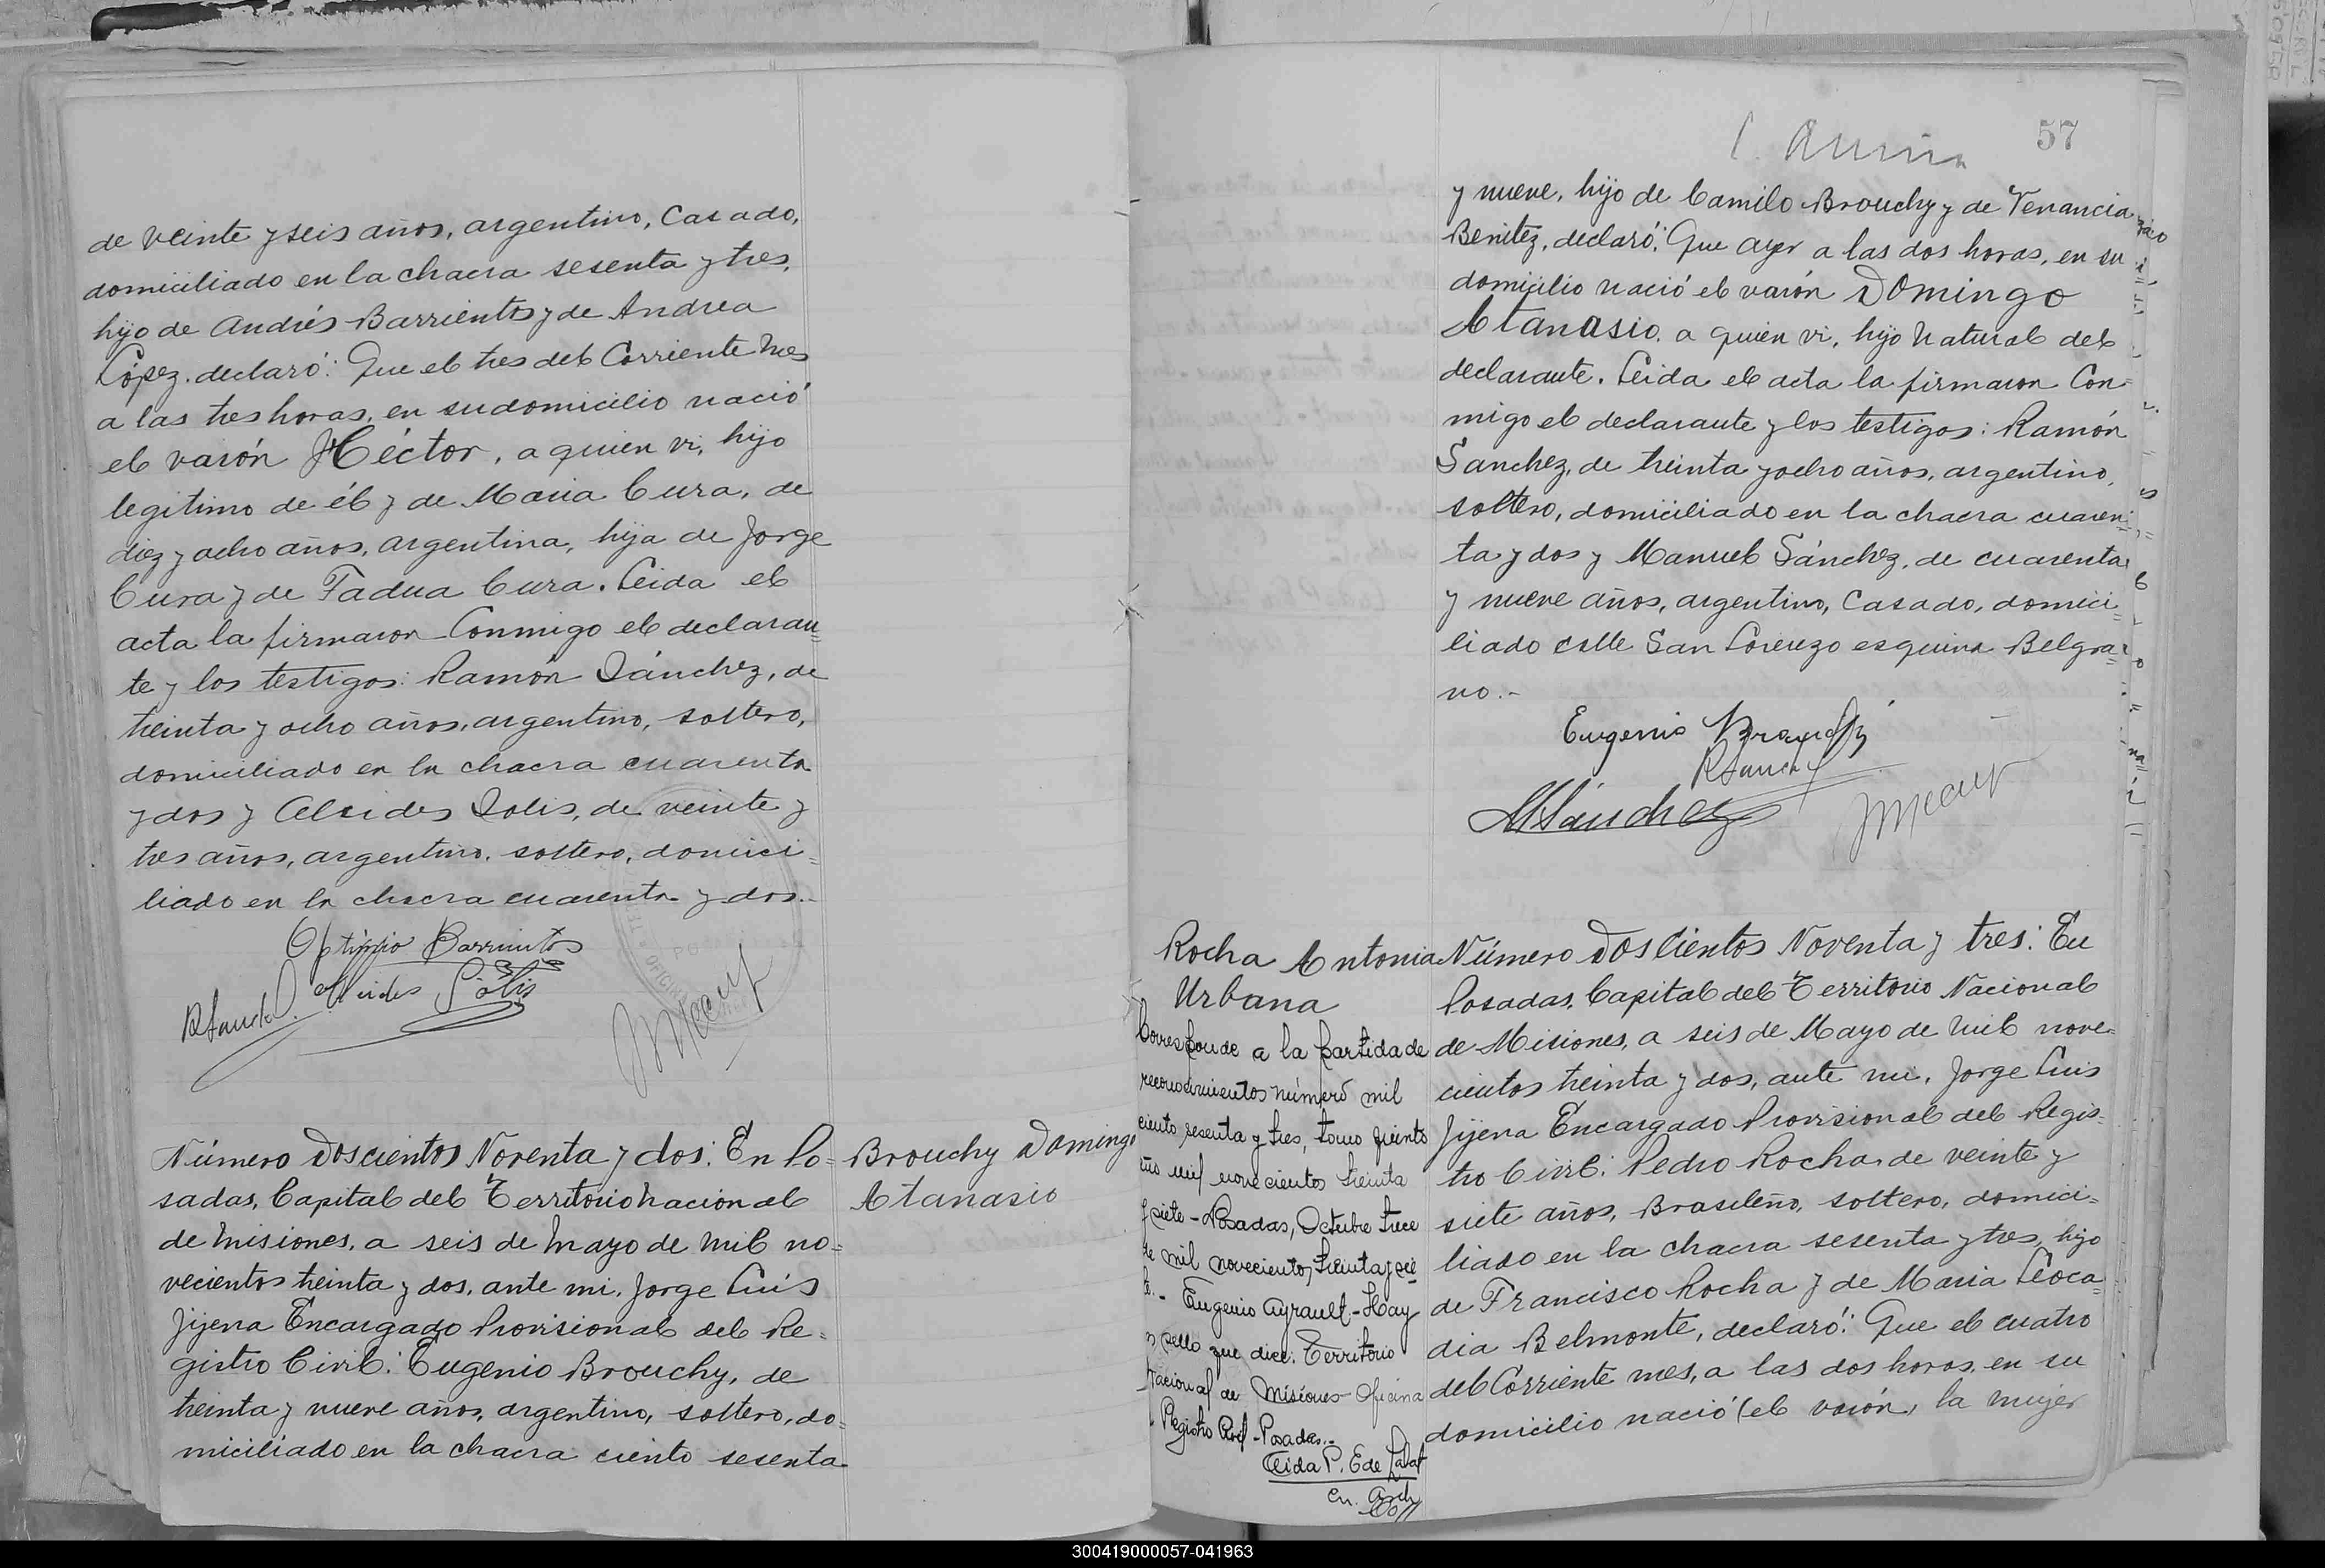 de veinte y seis años, argentino, Casado,
domiciliado en la chacra sesenta y tres,
hijo de Andrés Barrientos y de Andrea
López, declaró: Que el tres del Corriente mes
a las tres horas, en su domicilio nació
el varón Héctor, a quien vi, hijo
legítimo de él y de Maria Cura, de
diez y ocho años, argentina, hija de Jorge
Cura y de Fadua Cura. Leida el
acta la firmaron Conmigo el declaran=
te y los testigos: Ramón Sánchez, de
treinta y ocho años, argentino, soltero,
domiciliado en la chacra cuarenta
y dos y Alcides Solis, de veinte y
tres años, argentino, soltero, domici=
liado en la chacra cuarenta y dos.-
Barrientos
RSanch
Alcides Solis
Número Doscientos Noventa y dos: En Po=
sadas, Capital del Territorio nacional
de Misiones, a seis de Mayo de mil no=
vecientos treinta y dos, ante mi, Jorge Luis
Jijena Encargado Provisional del Re=
gistro Civil: Eugenio Brouchy, de
treinta y nueve años, argentino, soltero, do=
miciliado en la chacra ciento sesenta
Brouchy Domingo
Atanasio
57
y nueve, hijo de Camilo Brouchy y de Venancia
Benitez, declaró: Que ayer a las dos horas, en su
domicilio nació el varón Domingo
Atanasio, a quien vi, hijo natural del
declarante. Leida el acta la firmaron Con=
migo el declarante y los testigos: Ramón
Sanchez, de treinta y ocho años, argentino,
soltero, domiciliado en la chacra cuaren=
ta y dos y Manuel Sánchez, de cuarenta
y nueve años, argentino, Casado, domici=
liado calle San Lorenzo esquina Belgra=
no.-
Eugenio Brouchy
RSanch
MSánchez
Rocha Antonia
Urbana
Corresponde a la partida de
reconocimientos número mil
ciento sesenta y tres, tomo quinto
año mil novecientos treinta
y siete - Posadas, Octubre trece
de mil novecientos treinta y sie
te.- Eugenio Ayrault - Hay
un sello que dice: Territorio
Nacional de Misiones Oficina
Registro Civil - Posadas.-
Número Doscientos Noventa y tres: En
Posadas, Capital del Territorio Nacional
de Misiones, a seis de Mayo de mil nove=
cientos treinta y dos, ante mi, Jorge Luis
Jijena Encargado Provisional del Regis=
tro Civil: Pedro Rocha de veinte y
siete años, Brasileño, soltero, domici=
liado en la chacra sesenta y tres, hijo
de Francisco Rocha y de Maria Leoca=
dia Belmonte, declaró: Que el cuatro
del Corriente mes, a las dos horas, en su
domicilio nació (el varón, la mujer
300419000057-041963